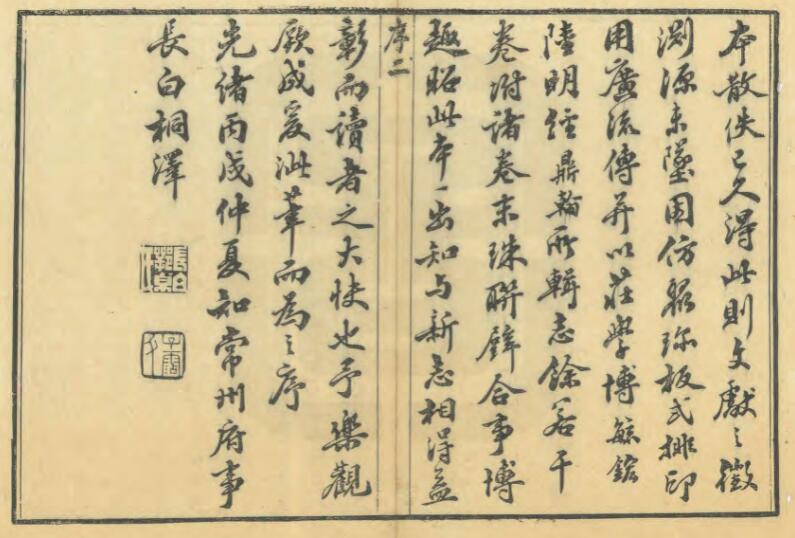 本散佚已久得此則文獻之徵
淵源未墜因仿聚珍板式排印
用廣流傳并以莊學博毓鋐
陸明經鼎翰所輯志餘若干
卷附諸卷末珠聯璧合事博
趣昭此本一出知与新志相得益
序二
彰而讀者之大快也予樂觀
厥成爰泚筆而為之序
光緒丙戌仲夏知常州府事
長白桐澤
長白